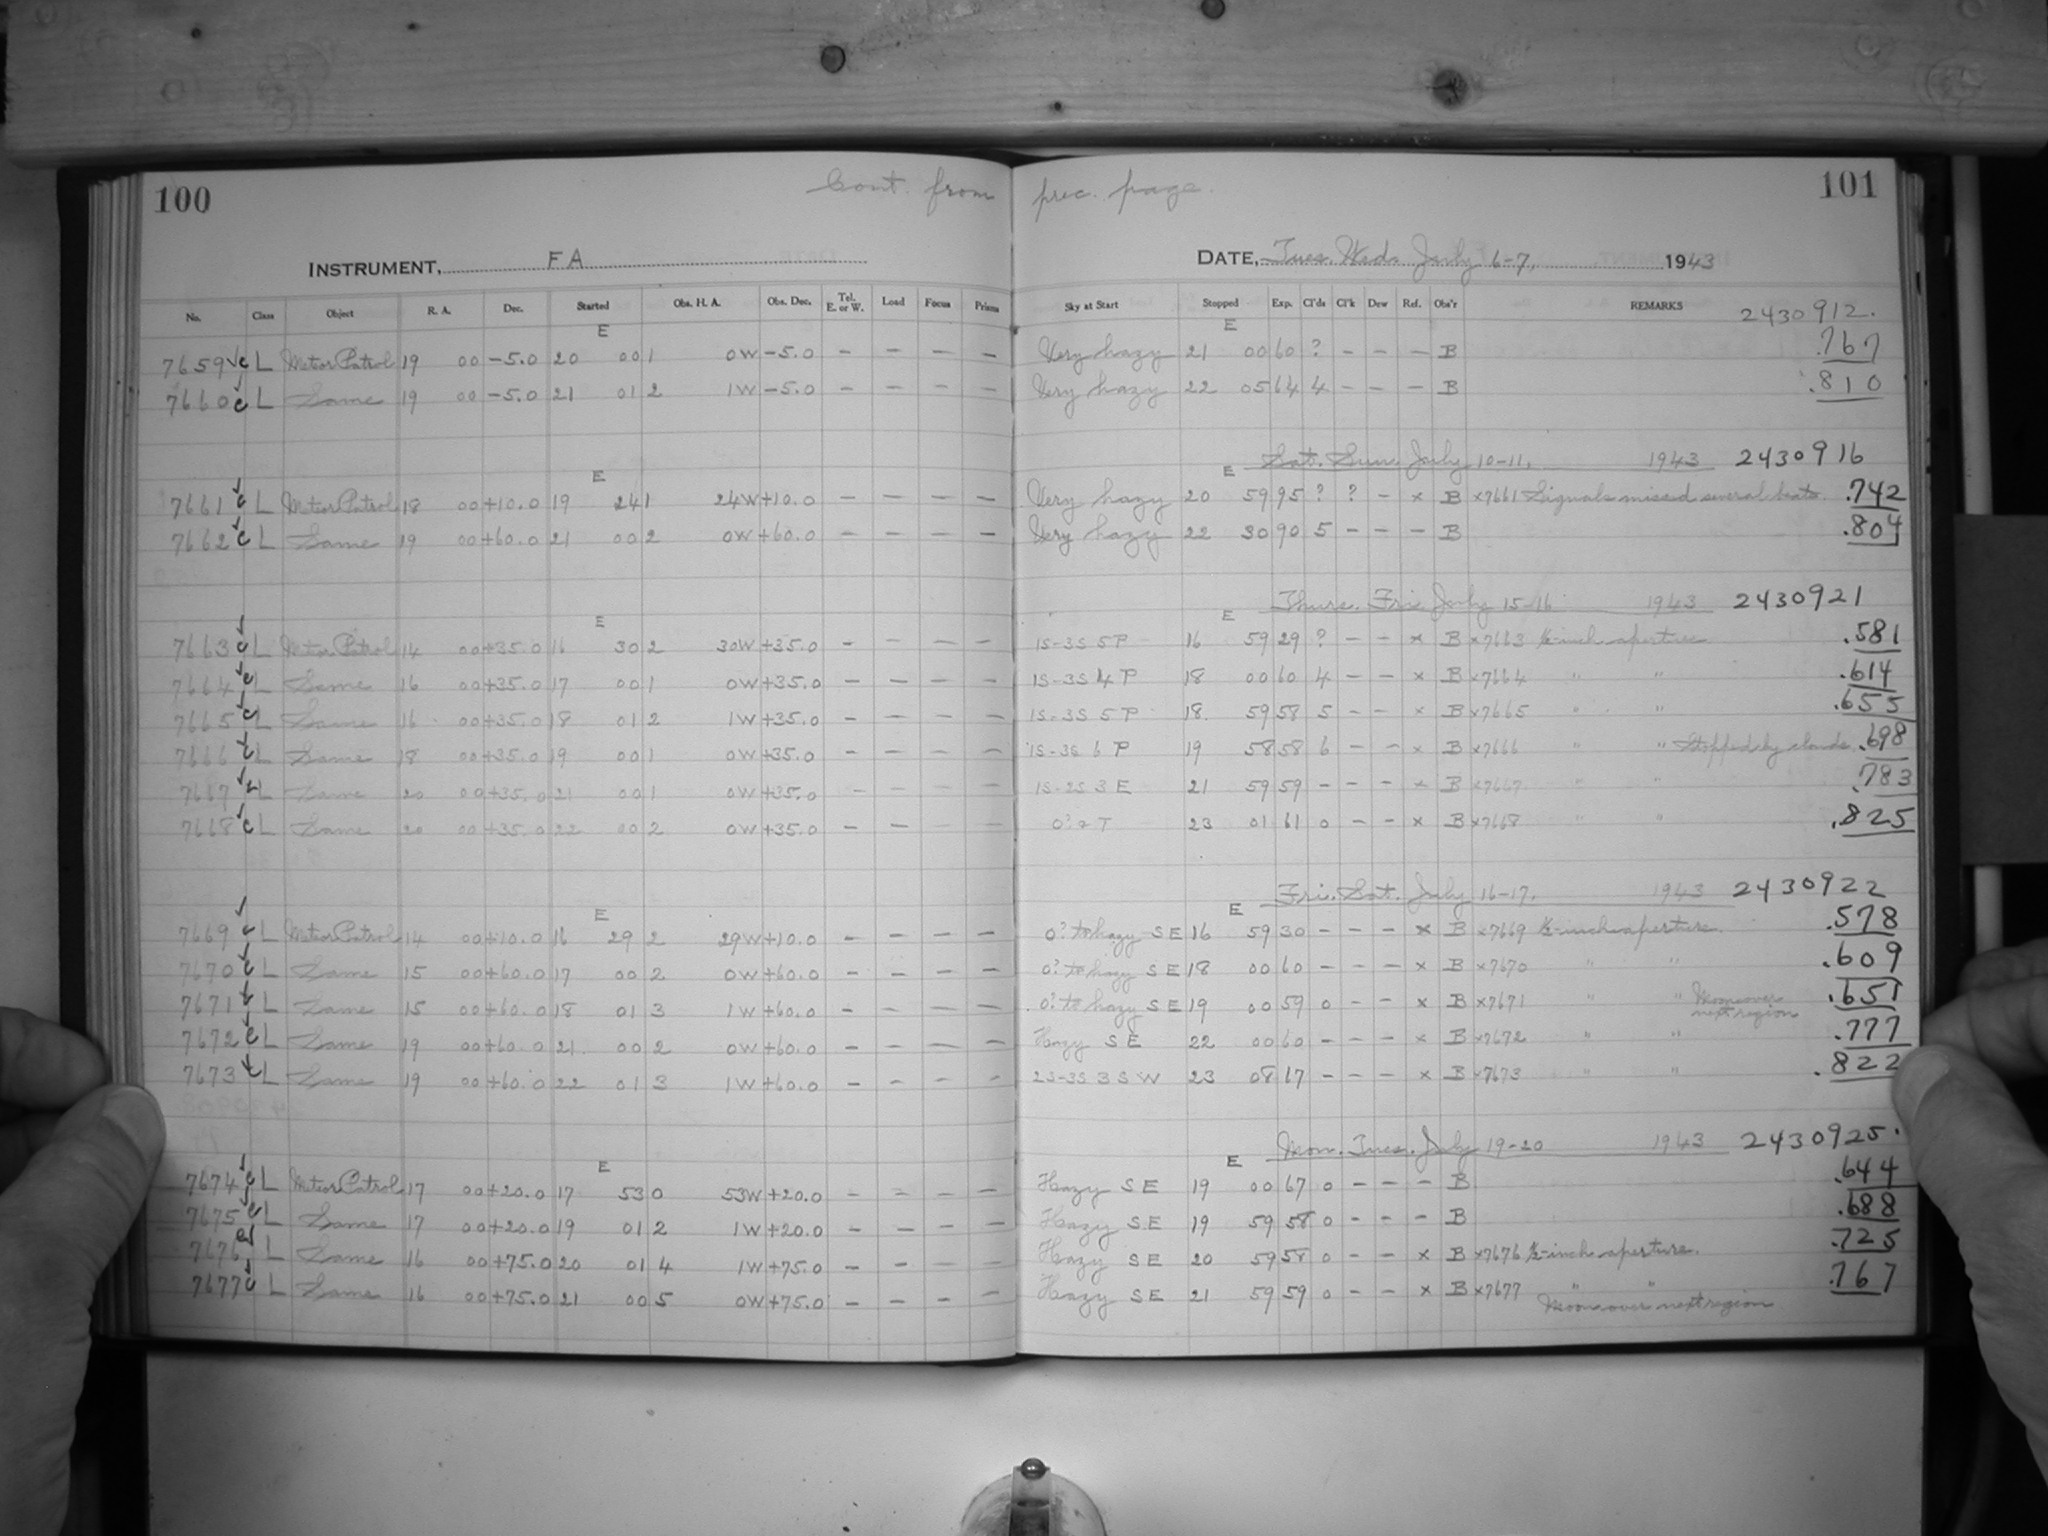 100 Cont. from prec. page. 101
INSTRUMENT, FA DATE, Tues. Weds. July 6-7, 1943
No. Class Object R. A. Dec. Started Obs. H. A. Obs. Dec. Tel. E. or W. Load Focus Prisms Sky at Start Stopped Exp. Cl'ds Cl'k Dew Ref. Obs'r REMARKS 2430912.
E E
7659 √c L Meteor Patrol 19 00 -5.0 20 00 1 0W -5.0 - - - - Very hazy 21 00 60 ? - - - B .767
7660 √c L Same 19 00 -5.0 21 01 2 1W -5.0 - - - - Very hazy 22 05 64 4 - - - B .810
Sat. Sun. July 10-11, 1943 2430916
E E
7661 √c L Meteor Patrol 18 00 +10.0 19 24 1 24W +10.0 - - - - Very hazy 20 59 95 ? ? - x B x7661 Signals missed several beats. .742
7662 √c L Same 19 00 +60.0 21 00 2 0W +60.0 - - - - Very hazy 22 30 90 5 - - - B .804
Thurs. Fri. July 15-16 1943 2430921
E E
7663 √c L Meteor Patrol 14 00 +35.0 16 30 2 30W +35.0 - - - - 1S-3S 5 P 16 59 29 ? - - x B x7663 ½-inch aperture. .581
7664 √c L Same 16 00 +35.0 17 00 1 0W +35.0 - - - - 1S-3S 4 P 18 00 60 4 - - x B x7664 " " .614
7665 √c L Same 16 00 +35.0 18 01 2 1W +35.0 - - - - 1S-3S 5 P 18 59 58 5 - - x B x7665 " " .655
7666 √c L Same 18 00 +35.0 19 00 1 0W +35.0 - - - - 1S-3S 6 P 19 58 58 6 - - x B x7666 " " Stopped by clouds. .698
7667 √c L Same 20 00 +35.0 21 00 1 0W +35.0 - - - - 1S-2S 3 E 21 59 59 - - - x B x7667 " " .783
7668 √c L Same 20 00 +35.0 22 00 2 0W +35.0 - - - - 23 01 61 0 - - x B x7668 " " .825
Fri. Sat. July 16-17, 1943 2430922
E E
7669 √c L Meteor Patrol 14 00 +10.0 16 29 2 29W +10.0 - - - - 0? to hazy S E 16 59 30 - - - x B x7669 ½-inch aperture. .578
7670 √c L Same 15 00 +60.0 17 00 2 0W +60.0 - - - - 0? to hazy S E 18 00 60 - - - x B x7670 " " .609
7671 √c L Same 15 00 +60.0 18 01 3 1W +60.0 - - - - 0? to hazy S E 19 00 59 0 - - x B x7671 " " Moon over next region .651
7672 √c L Same 19 00 +60.0 21 00 2 0W +60.0 - - - - Hazy S E 22 00 60 - - - x B x7672 " " .777
7673 √c L Same 19 00 +60.0 22 01 3 1W +60.0 - - - - 2S-3S 3 S W 23 08 67 - - - x B x7673 " " .822
Mon. Tues. July 19-20 1943 2430925.
E E
7674 √c L Meteor Patrol 17 00 +20.0 17 53 0 53W +20.0 - - - - Hazy S E 19 00 67 0 - - - B .644
7675 √c L Same 17 00 +20.0 19 01 2 1W +20.0 - - - - Hazy S.E 19 59 58 0 - - - B .688
7676 c√ L Same 16 00 +75.0 20 01 4 1W +75.0 - - - - Hazy S E 20 59 58 0 - - x B x7676 ½-inch aperture. .725
7677 √c L Same 16 00 +75.0 21 00 5 0W +75.0 - - - - Hazy S E 21 59 59 0 - - x B x7677 " " .767
Moon over next region